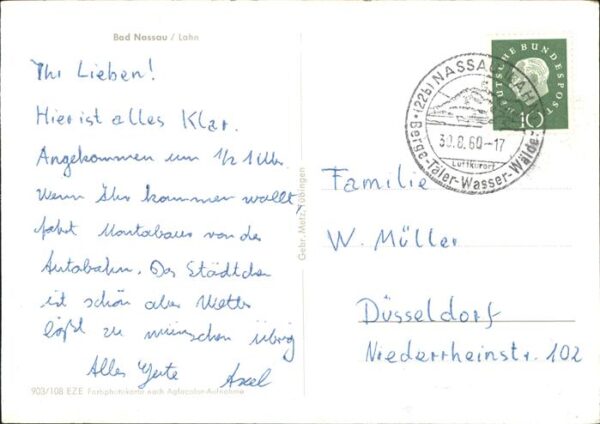 Bad Nassau / Lahn
Ihr Lieben!
Hier ist alles Klar.
Angekommen um 1/2 1 Uhr.
Wenn Ihr kommen wollt,
fahrt Montabaur von der
Autobahn. Das Städtchen
ist schön aber Wetter
läßt zu wünschen übrig
Alles Gute Axel
903/108 EZE Farbphotokarte nach Agfacolor-Aufnahme
Gebr. Metz, Tübingen
DEUTSCHE BUNDESPOST
10
(22b) NASSAU (LAHN)
30.8.60-17
Luftkurort
Berge-Täler-Wasser-Wälder
Familie
W. Müller
Düsseldorf
Niederrheinstr. 102